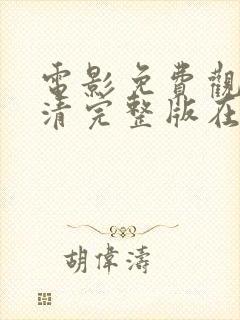 電影免費觀
清完整版在
胡偉濤